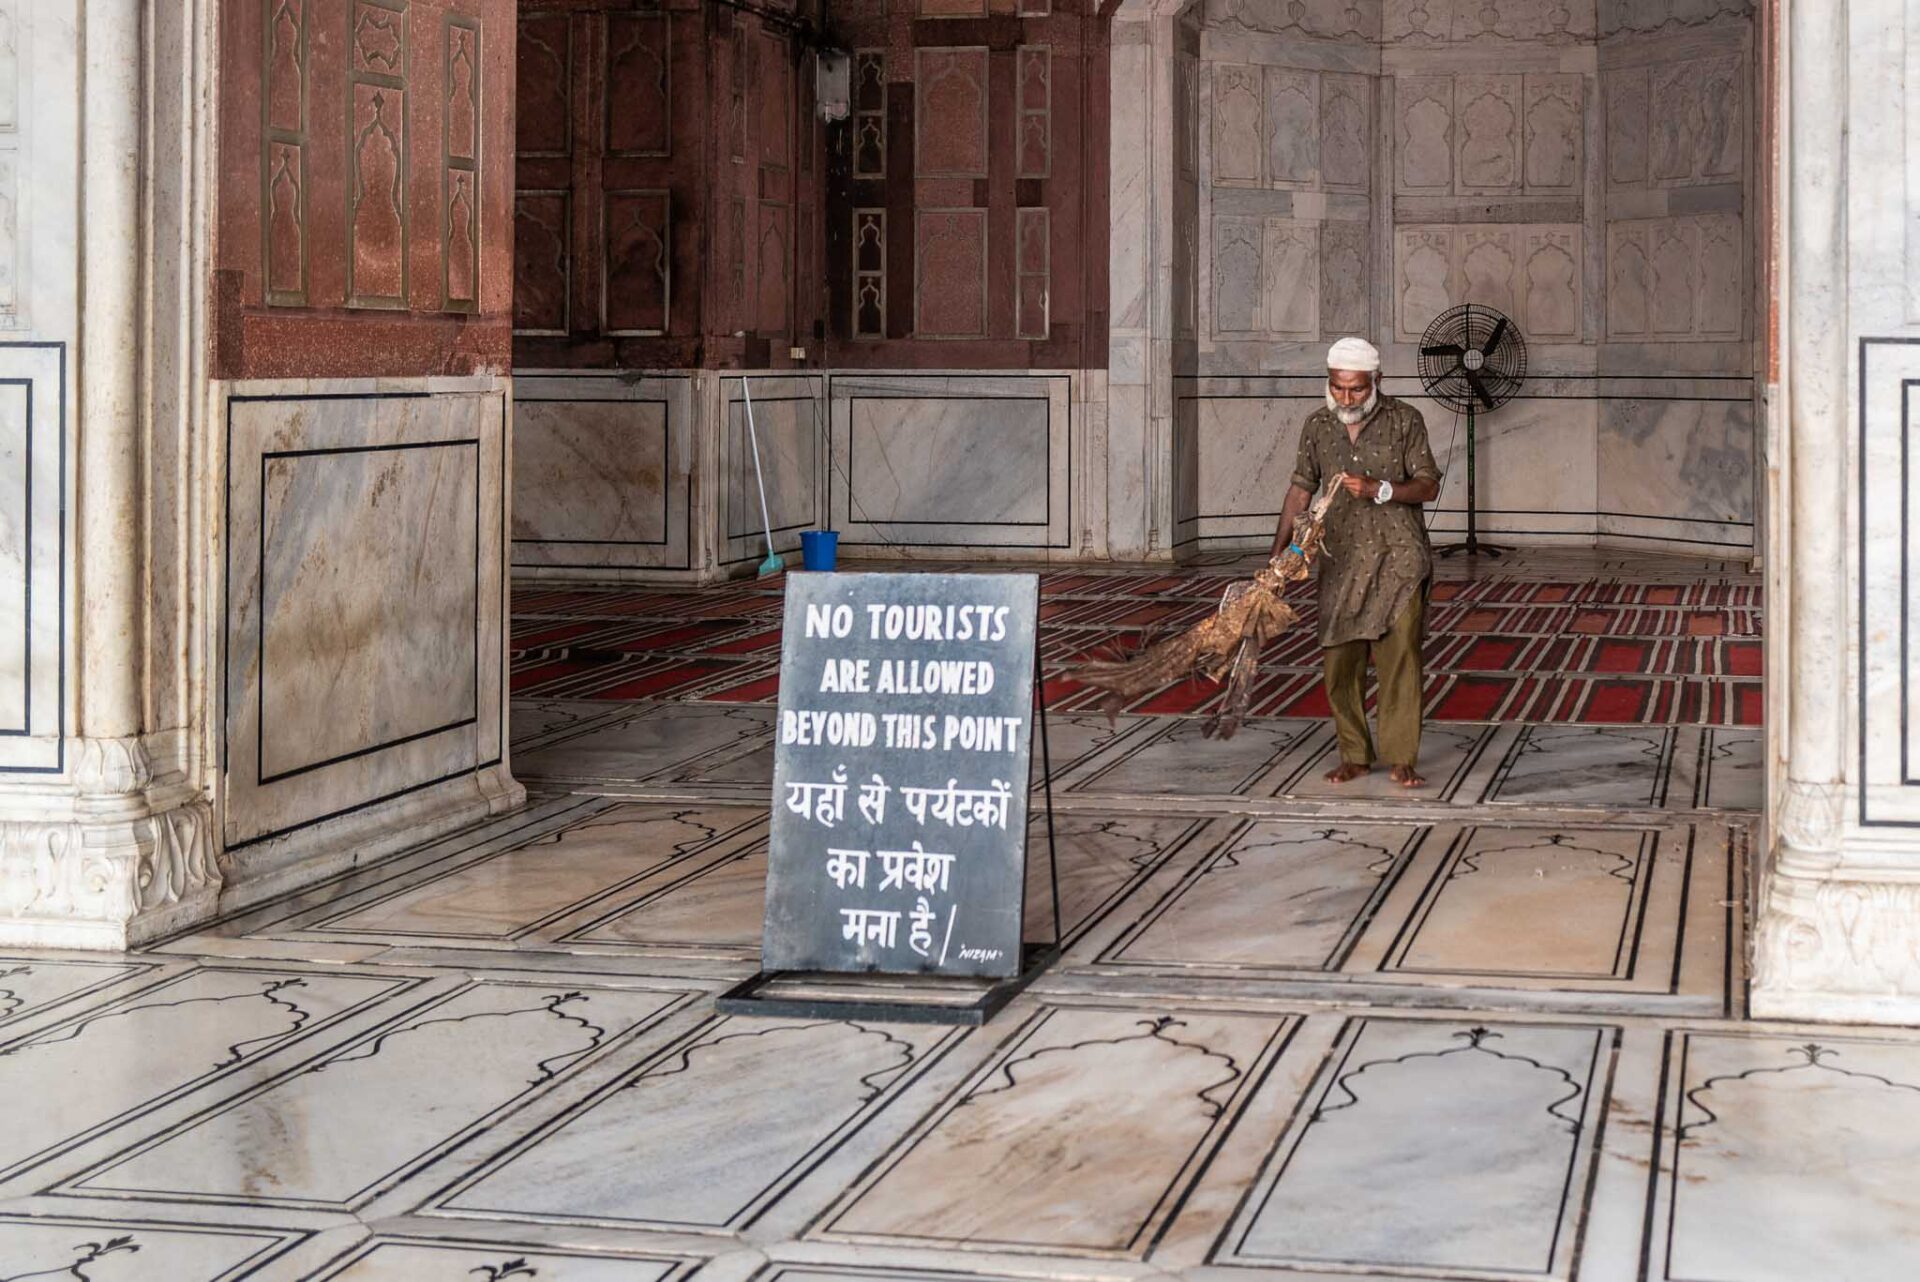 NO TOURISTS
ARE ALLOWED
BEYOND THIS POINT
यहाँ से पर्यटकों
का प्रवेश
मना है/
"NIZAM"